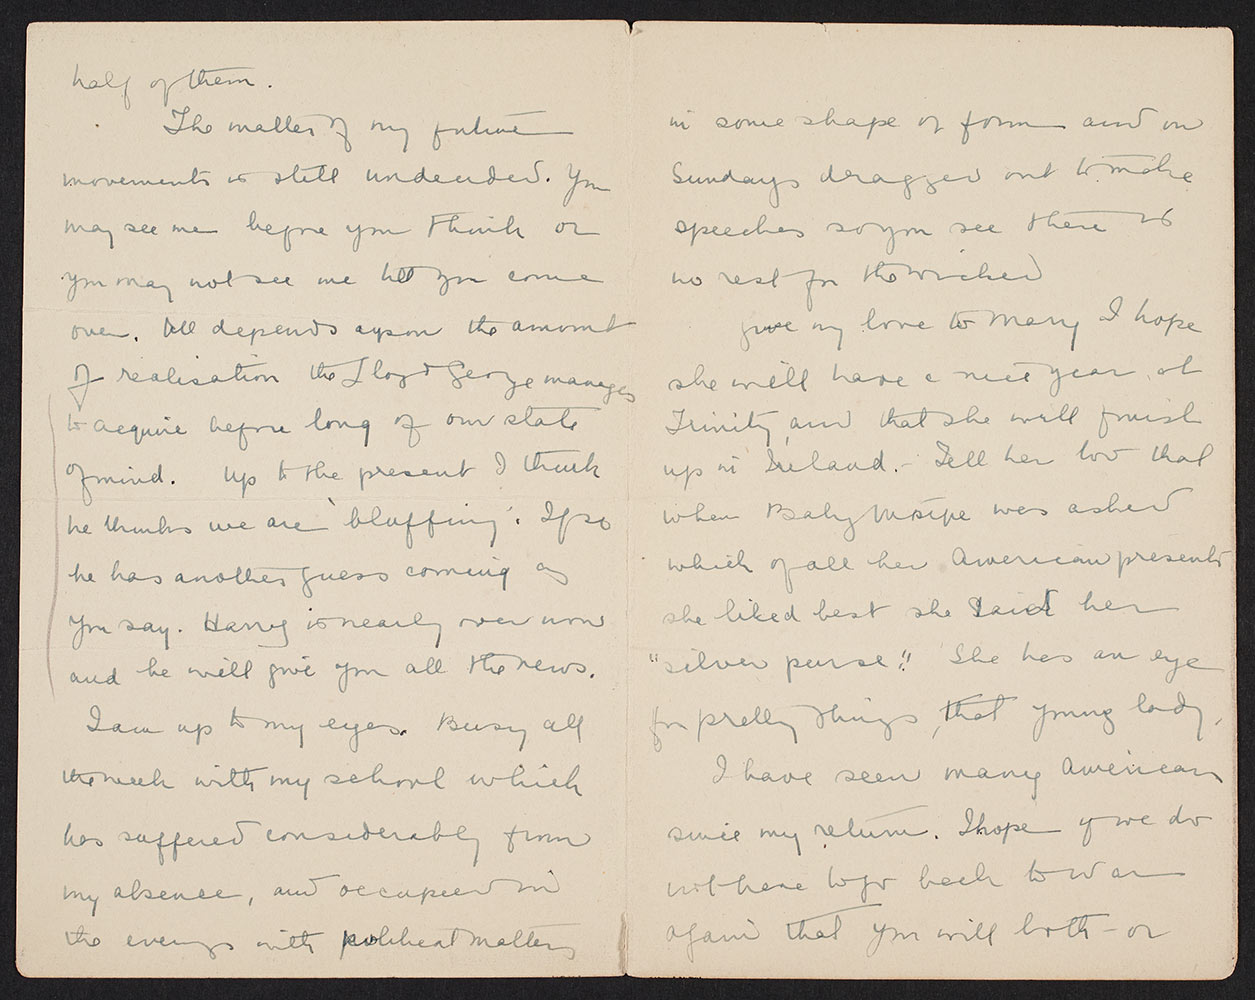 half of them.
The matter of my future
movements is still undecided. You
may see me before you think or
you may not see me till you come
over. All depends upon the amount
of realisation the Lloyd George manages
to acquire before long of our state
of mind. Up to the present I think
he thinks we are 'bluffing'. If so
he has another guess coming as
you say. Harry is nearly over now
and he will give you all the news.
I am up to my eyes. Busy all
the week with my school which
has suffered considerably from
my absence, and occupied in
the evenings with political matters
in some shape or form and on
Sundays dragged out to make
speeches so you see there is
no rest for the wicked
Give my love to Mary I hope
she will have a nice year at
Trinity and that she will finish
up in Ireland. - Tell her too that
when Baby was asked
which of all her American presents
she liked best she said her
"silver purse"! She has an eye
for pretty things, that young lady.
I have seen many Americans
since my return. I hope if we do
not have to go back to war
again that you will both - or